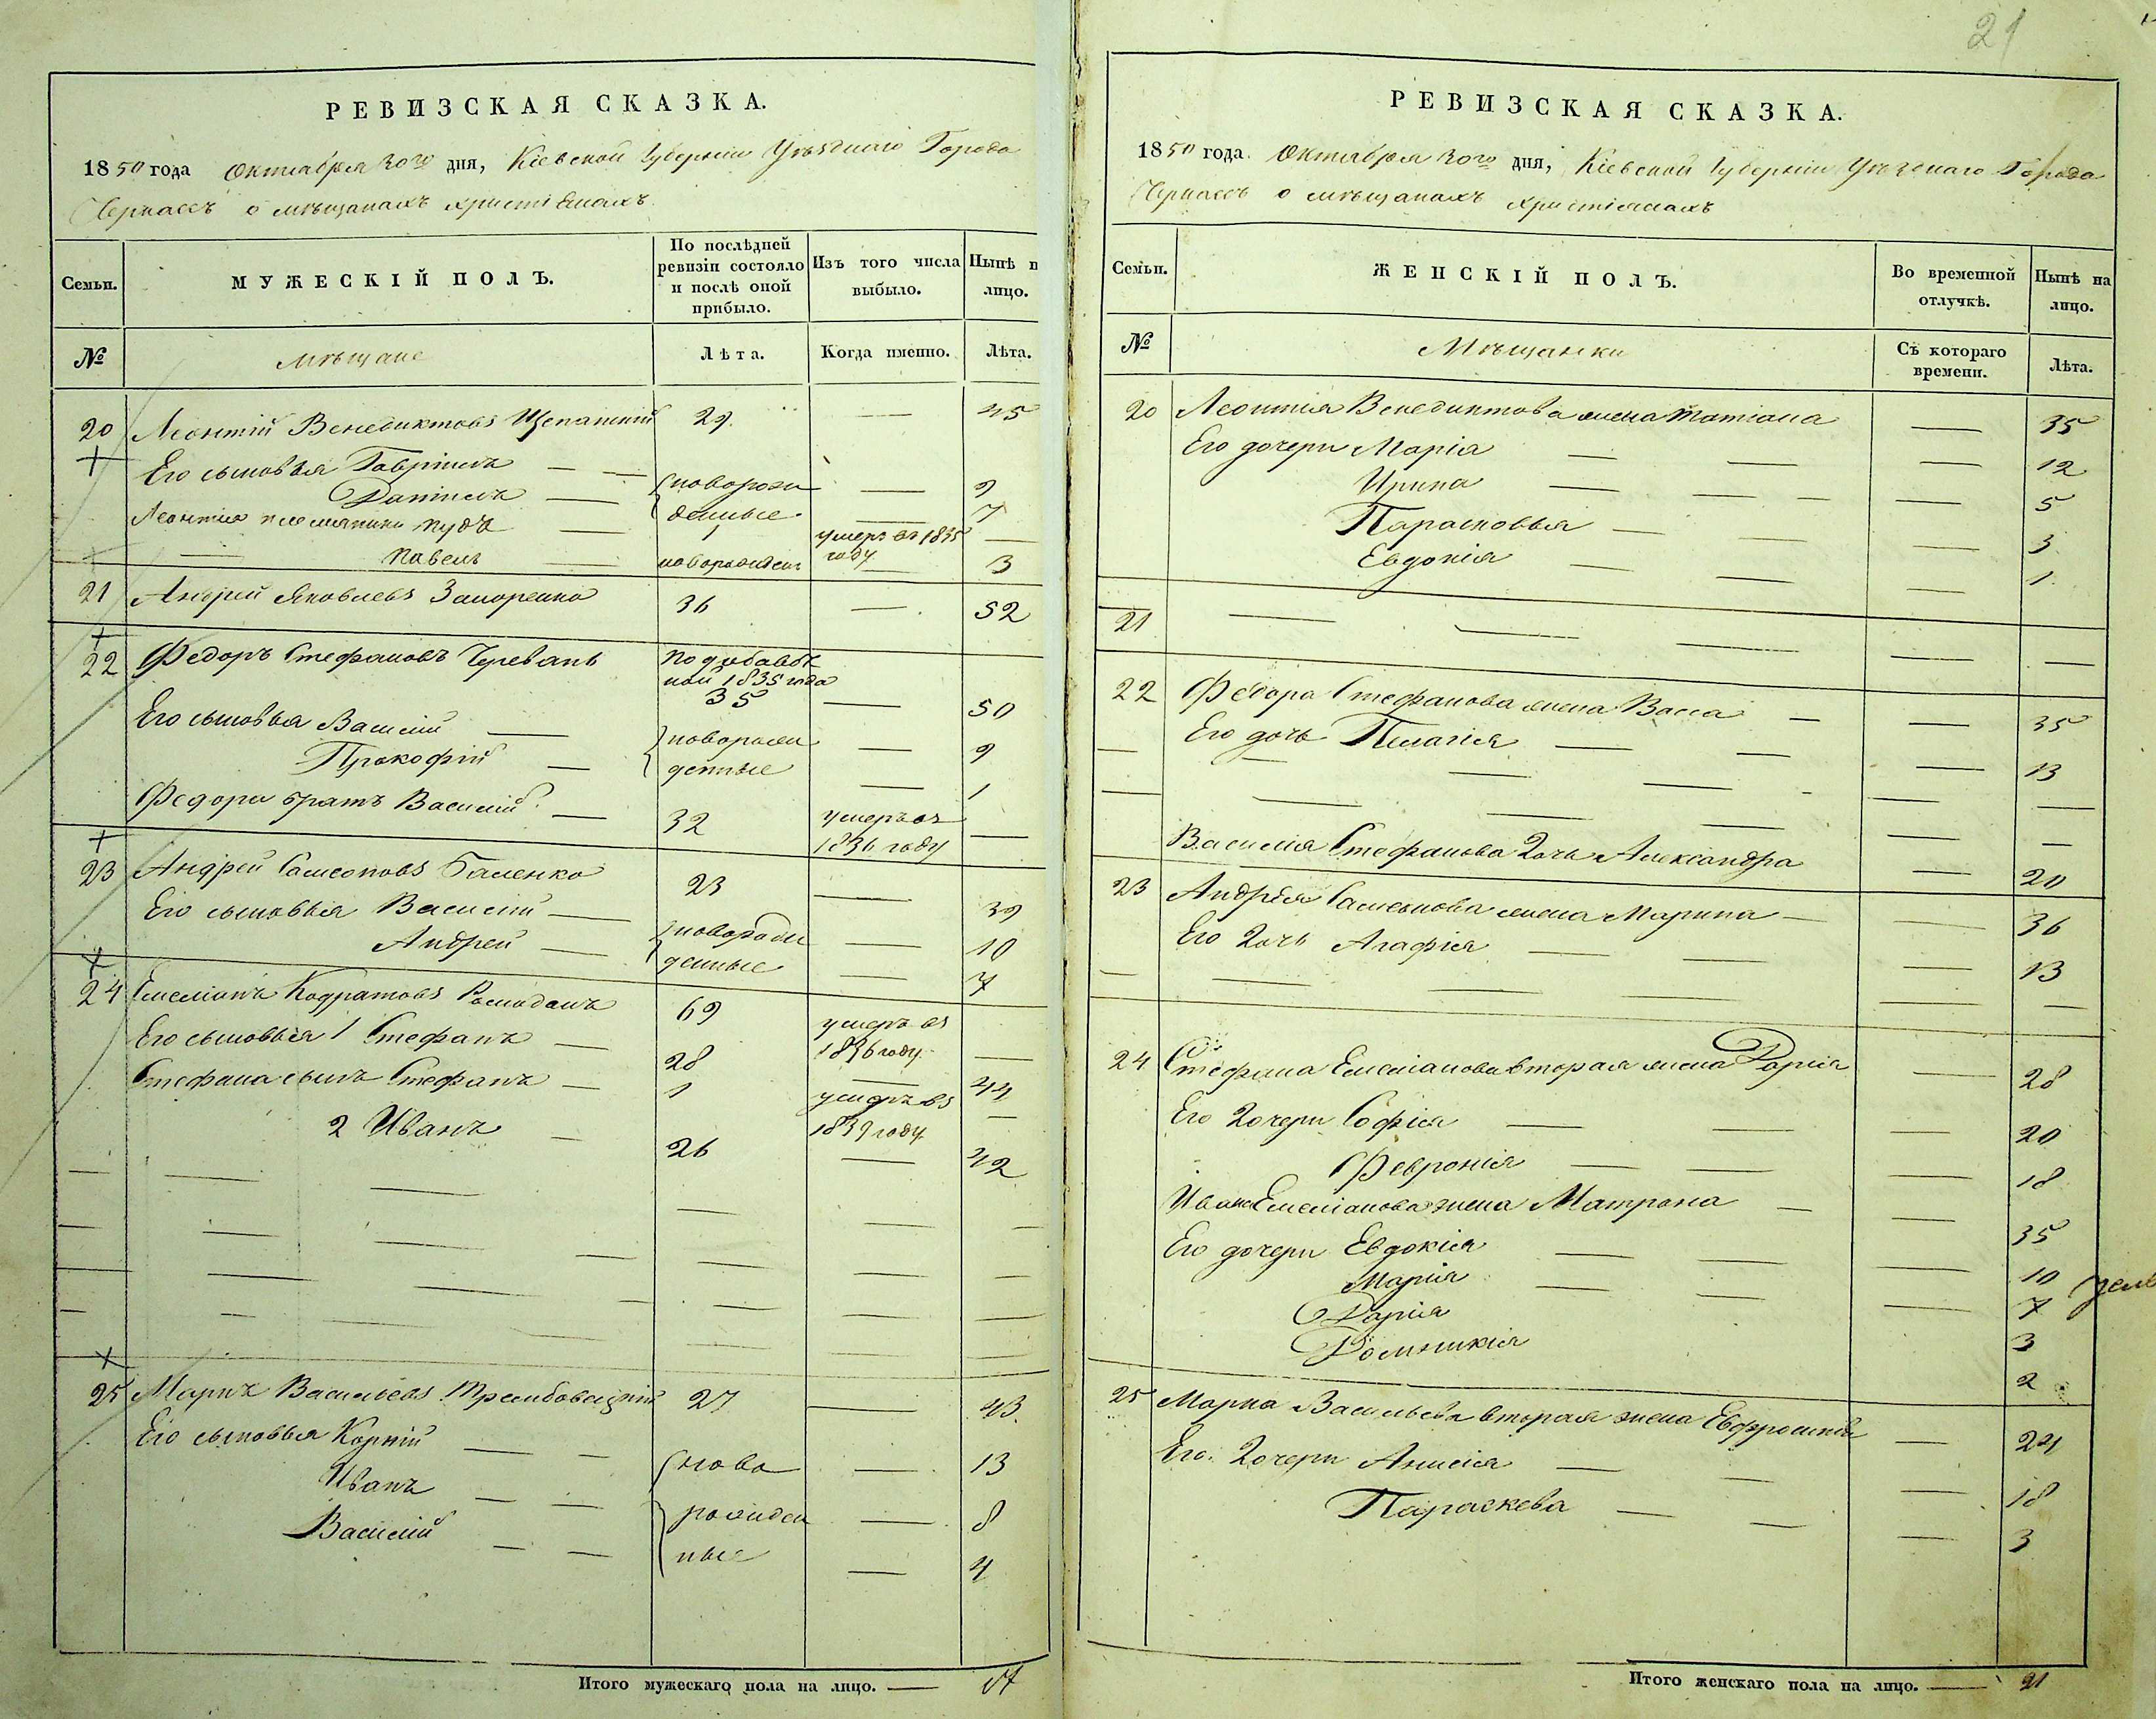 21
РЕВИЗСКАЯ СКАЗКА.
1850 года Октября 30го дня, Кіевской Губерніи Уѣзднаго Города
Черкассъ о мѣщанахъ христіянахъ.
Семьи. МУЖЕСКІЙ ПОЛЪ. По послѣдней ревизіи состояло и послѣ оной прибыло. Изъ того числа выбыло. Нынѣ н лицо.
№ Мѣщане Лѣта. Когда именно. Лѣта.
20 Леонтій Венедиктовъ Щепанскій 29. — 45
Его сыновья Гавріилъ — — новорож — 9
Даніилъ — денные — 7
Леонтія племянники Іуда — 1 умеръ въ 1835 году —
— Павелъ — новорожденъ — 3
21 Андрій Яковлевъ Запоренко 36 — 52
22 Федоръ Стефановъ Чуреванъ По добавоч ной 1835 года 35 — 50
Его сыновья Василій — новорож — 9
Прокофій — денные — 1
Федора братъ Василій — 32 умеръ въ 1836 году —
23 Андрей Самсоновъ Галенко 23 — 39
Его сыновья Василій — новорож — 10
Андрей — денные — 7
24 Емеліанъ Кодратовъ Рамоданъ 69 умеръ въ 1836 году —
Его сыновья 1 Стефанъ — 28 — 44
Стефана сынъ Стефанъ — 1 умеръ въ 1839 году —
2 Иванъ — 26 — 42
25 Маркъ Васильевъ Трембовецкій 27 — 43.
Его сыновья Корній — — ново — 13
Иванъ — — рожден — 8
Василій — — ные — 4
Итого мужескаго пола на лицо. — 17
РЕВИЗСКАЯ СКАЗКА.
1850 года. Октября 30го дня, Кіевской Губерніи Уѣзднаго Города
Черкассъ о мѣщанахъ христіянахъ
Семьи. ЖЕНСКІЙ ПОЛЪ. Во временной отлучкѣ. Нынѣ на лицо.
№ Мѣщанки Съ котораго времени. Лѣта.
20 Леонтія Венедиктова жена Татіана — 35
Его дочери Марія — — — 12
Ирина — — — — 5
Парасковья — — — 3
Евдокія — — — 1.
21 — — — — —
22 Федора Стефанова жена Васса — — 35
Его дочь Пелагія — — — 13
Василія Стефанова дочь Александра — 20
23 Андрея Самсонова жена Марина — — 36
Его дочь Агафія — — — 13
24 Стефана Емеліанова вторая жена Дарія — 28
Его дочери Софія — — — 20
Февронія — — — 18
Ивана Емеліанова жена Матрона — — 35
Его дочери Евдокія — — — 10
Марія — — — 7
Дарія 3
Домникія 2
25 Марка Васильева вторая жена Евфросинія — 24
Его дочери Анисія — — — 18
Параскева — — — 3
Итого женскаго пола на лицо. — 21